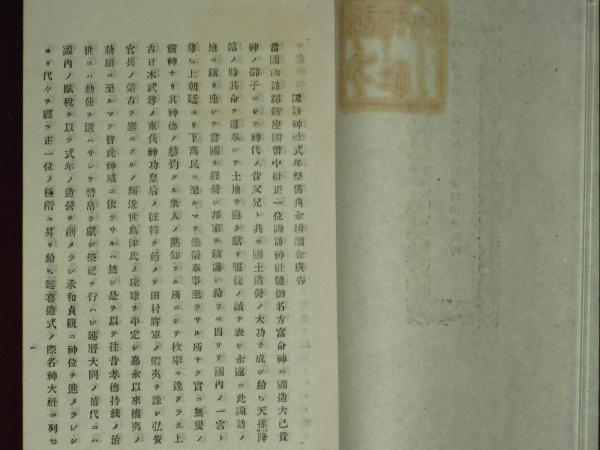 諏訪神社式年祭舊典永續講金廣告
當國諏訪郡鎭座國幣中社正一位諏訪神社健御名方富命神ハ國造大己貴
神ノ御子ニシテ神代ノ昔父兄ト共ニ國土造營ノ大功ヲ成シ給ヒ天孫降
臨ノ時其命ヲ遵奉シテ土地ヲ避ケ獻リ服從ノ誠ヲ表シ永遠ニ此諏訪ノ
地ニ鎭リ座シテ當國ヲ經營シ邦家ヲ鎭護シ給フニ因リテ國内ノ一宮ト
尊ヒ上朝廷ヨリ下萬民ニ至ルマテ崇敬奉事至ラサル所ナク實ニ無雙ノ
靈神ナリ其神德ノ赫灼タル衆人ノ熟知スル所ニシテ枚擧ニ遑アラス上
古日本武尊ノ東伐神功皇后ノ征韓ヲ始メ田村將軍ノ蝦夷ヲ誅シ弘安
官兵ノ蒙古ヲ塞ニスルノ類近世島津氏ノ琉球ヲ平定シ嘉永以來攘夷ノ
勅願ニ至ルマテ皆此神威ニ依ラサルハ無シ是ヲ以テ往昔孝德持統ノ治
世ニハ勅使ヲ遣ハサレテ幣帛ヲ獻シ祭祀ヲ行ハレ延曆大同ノ盛代ニハ
國内ノ賦税ヲ以テ式年ノ造營ヲ創メラレ承和貞觀ニ神位ヲ進メラレシ
ヨリ代々ヲ經テ正一位ノ極階ニ昇リ給ヒ延喜造式ノ際名神大社ニ列セ